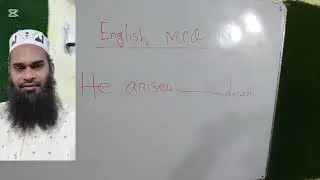 English M.C.Q
He arises ____ dawn